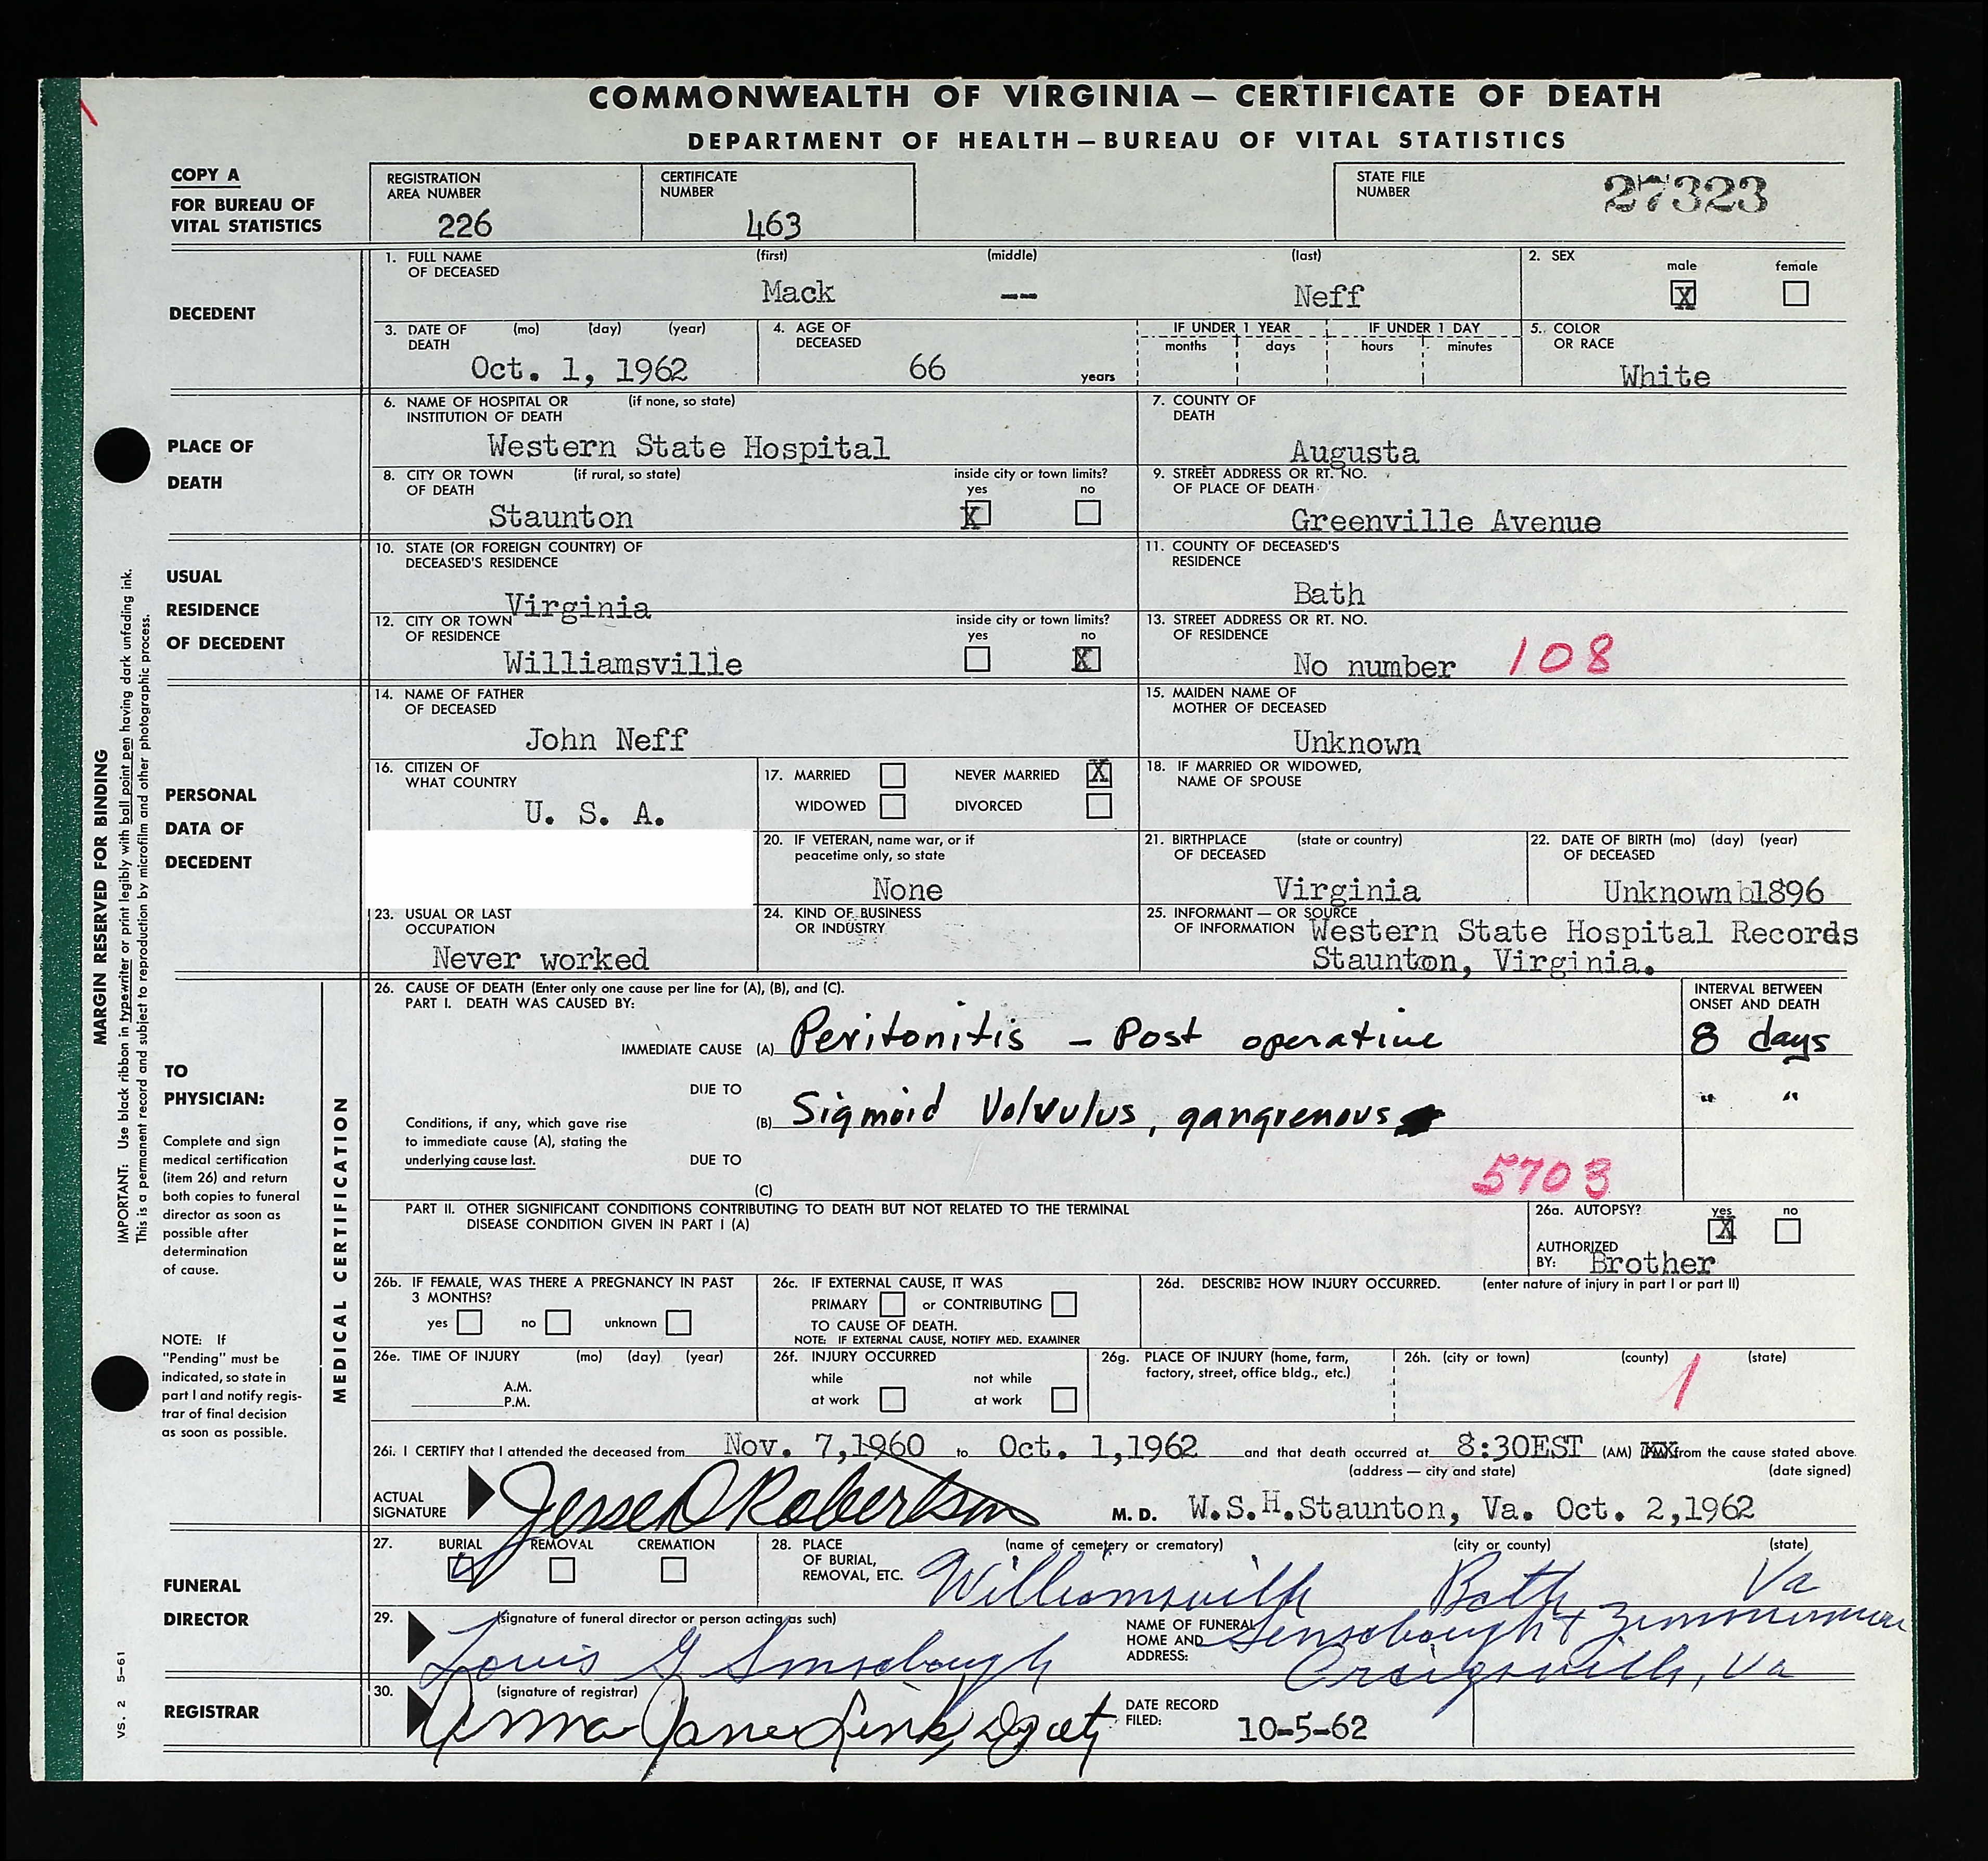 COMMONWEALTH OF VIRGINIA — CERTIFICATE OF DEATH
DEPARTMENT OF HEALTH — BUREAU OF VITAL STATISTICS
COPY A
FOR BUREAU OF
VITAL STATISTICS
REGISTRATION
AREA NUMBER
226
CERTIFICATE
NUMBER
463
STATE FILE
NUMBER
27323
DECEDENT
1. FULL NAME
OF DECEASED
(first) (middle) (last)
Mack -- Neff
2. SEX
male female
X
3. DATE OF (mo) (day) (year)
DEATH
Oct. 1, 1962
4. AGE OF
DECEASED
66 years
IF UNDER 1 YEAR IF UNDER 1 DAY
months days hours minutes
5. COLOR
OR RACE
White
PLACE OF
DEATH
6. NAME OF HOSPITAL OR (if none, so state)
INSTITUTION OF DEATH
Western State Hospital
7. COUNTY OF
DEATH
Augusta
8. CITY OR TOWN (if rural, so state)
OF DEATH
Staunton
inside city or town limits?
yes no
X
9. STREET ADDRESS OR RT. NO.
OF PLACE OF DEATH
Greenville Avenue
USUAL
RESIDENCE
OF DECEDENT
10. STATE (OR FOREIGN COUNTRY) OF
DECEASED'S RESIDENCE
Virginia
11. COUNTY OF DECEASED'S
RESIDENCE
Bath
12. CITY OR TOWN
OF RESIDENCE
Williamsville
inside city or town limits?
yes no
X
13. STREET ADDRESS OR RT. NO.
OF RESIDENCE
No number 108
PERSONAL
DATA OF
DECEDENT
14. NAME OF FATHER
OF DECEASED
John Neff
15. MAIDEN NAME OF
MOTHER OF DECEASED
Unknown
16. CITIZEN OF
WHAT COUNTRY
U. S. A.
17. MARRIED NEVER MARRIED X
WIDOWED DIVORCED
18. IF MARRIED OR WIDOWED,
NAME OF SPOUSE
20. IF VETERAN, name war, or if
peacetime only, so state
None
21. BIRTHPLACE (state or country)
OF DECEASED
Virginia
22. DATE OF BIRTH (mo) (day) (year)
OF DECEASED
Unknown 1896
23. USUAL OR LAST
OCCUPATION
Never worked
24. KIND OF BUSINESS
OR INDUSTRY
25. INFORMANT — OR SOURCE
OF INFORMATION
Western State Hospital Records
Staunton, Virginia.
MARGIN RESERVED FOR BINDING
IMPORTANT: Use black ribbon in typewriter or print legibly with ball point pen having dark unfading ink.
This is a permanent record and subject to reproduction by microfilm and other photographic process.
TO
PHYSICIAN:
Complete and sign
medical certification
(item 26) and return
both copies to funeral
director as soon as
possible after
determination
of cause.
NOTE: If
"Pending" must be
indicated, so state in
part I and notify regis-
trar of final decision
as soon as possible.
MEDICAL CERTIFICATION
26. CAUSE OF DEATH (Enter only one cause per line for (A), (B), and (C).
PART I. DEATH WAS CAUSED BY:
INTERVAL BETWEEN
ONSET AND DEATH
IMMEDIATE CAUSE (A) Peritonitis - Post operative
8 days
DUE TO
Conditions, if any, which gave rise
to immediate cause (A), stating the
underlying cause last.
(B) Sigmoid Volvulus, gangrenous
" "
DUE TO
(C)
5703
PART II. OTHER SIGNIFICANT CONDITIONS CONTRIBUTING TO DEATH BUT NOT RELATED TO THE TERMINAL
DISEASE CONDITION GIVEN IN PART I (A)
26a. AUTOPSY? yes no
X
AUTHORIZED
BY: Brother
26b. IF FEMALE, WAS THERE A PREGNANCY IN PAST
3 MONTHS?
yes no unknown
26c. IF EXTERNAL CAUSE, IT WAS
PRIMARY or CONTRIBUTING
TO CAUSE OF DEATH.
NOTE: IF EXTERNAL CAUSE, NOTIFY MED. EXAMINER
26d. DESCRIBE HOW INJURY OCCURRED. (enter nature of injury in part I or part II)
26e. TIME OF INJURY (mo) (day) (year)
A.M.
P.M.
26f. INJURY OCCURRED
while not while
at work at work
26g. PLACE OF INJURY (home, farm,
factory, street, office bldg., etc.)
26h. (city or town) (county) (state)
1
26i. I CERTIFY that I attended the deceased from Nov. 7,1960 to Oct. 1,1962 and that death occurred at 8:30EST (AM) from the cause stated above.
(address — city and state) (date signed)
ACTUAL
SIGNATURE
Jesse D Robertson
M. D. W.S.H.Staunton, Va. Oct. 2,1962
FUNERAL
DIRECTOR
27. BURIAL REMOVAL CREMATION
28. PLACE
OF BURIAL,
REMOVAL, ETC.
(name of cemetery or crematory) (city or county) (state)
Williamsville Bath Va
29. (signature of funeral director or person acting as such)
Louis G Sensabaugh
NAME OF FUNERAL
HOME AND
ADDRESS:
Sensabaugh & Zimmerman
Craigsville, Va
REGISTRAR
30. (signature of registrar)
Anna Jane Link, Dputy
DATE RECORD
FILED:
10-5-62
VS. 2 5-61